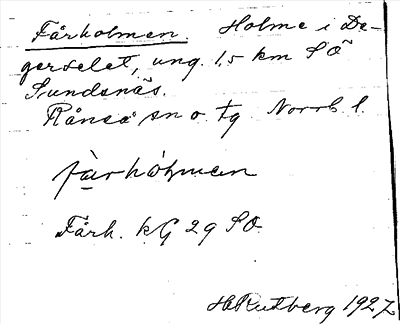 Fårholmen. Holme i De-
gerselet, ung. 1,5 km SO
Sundsnäs.
Råneå sn o. tg Norrb. l.
fàrhòlmen
Fårh. kG 29 SO
H. Rutberg 1927